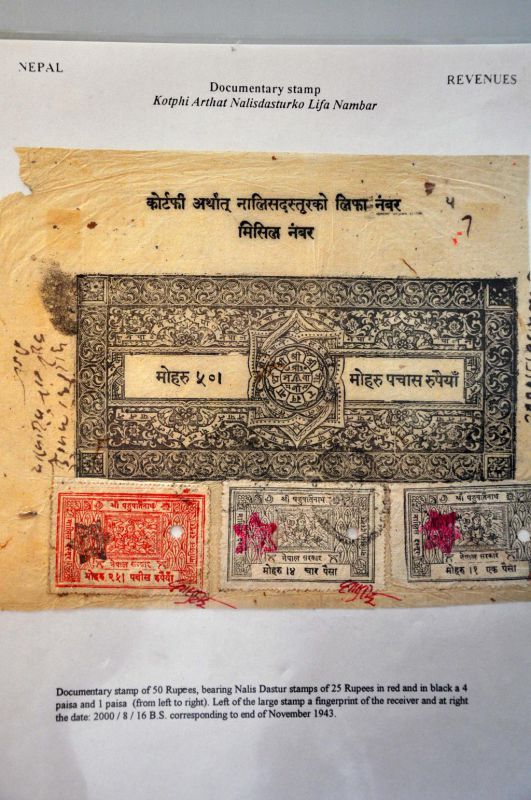 NEPAL
REVENUES
Documentary stamp
Kotphi Arthat Nalisdasturko Lifa Nambar
कोर्टफी अर्थात् नालिसदस्तूरको लिफा नंबर
४
मिसिल नंबर
7
मोहरु ५०।
मोहरु पचास रुपैयाँ
श्री पशुपतिनाथ
नेपाल सरकार
मोहरु २५। पचीस रुपैयाँ
श्री पशुपतिनाथ
नेपाल सरकार
मोहरु ।४ चार पैसा
श्री पशुपतिनाथ
नेपाल सरकार
मोहरु ।१ एक पैसा
Documentary stamp of 50 Rupees, bearing Nalis Dastur stamps of 25 Rupees in red and in black a 4
paisa and 1 paisa (from left to right). Left of the large stamp a fingerprint of the receiver and at right
the date: 2000 / 8 / 16 B.S. corresponding to end of November 1943.